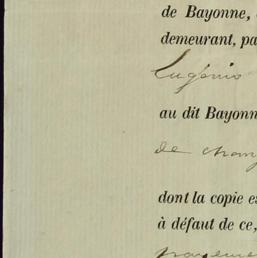 de Bayonne,
demeurant, pa
Eugénio
au dit Bayonn
de chang
dont la copie es
à défaut de ce,
payeme